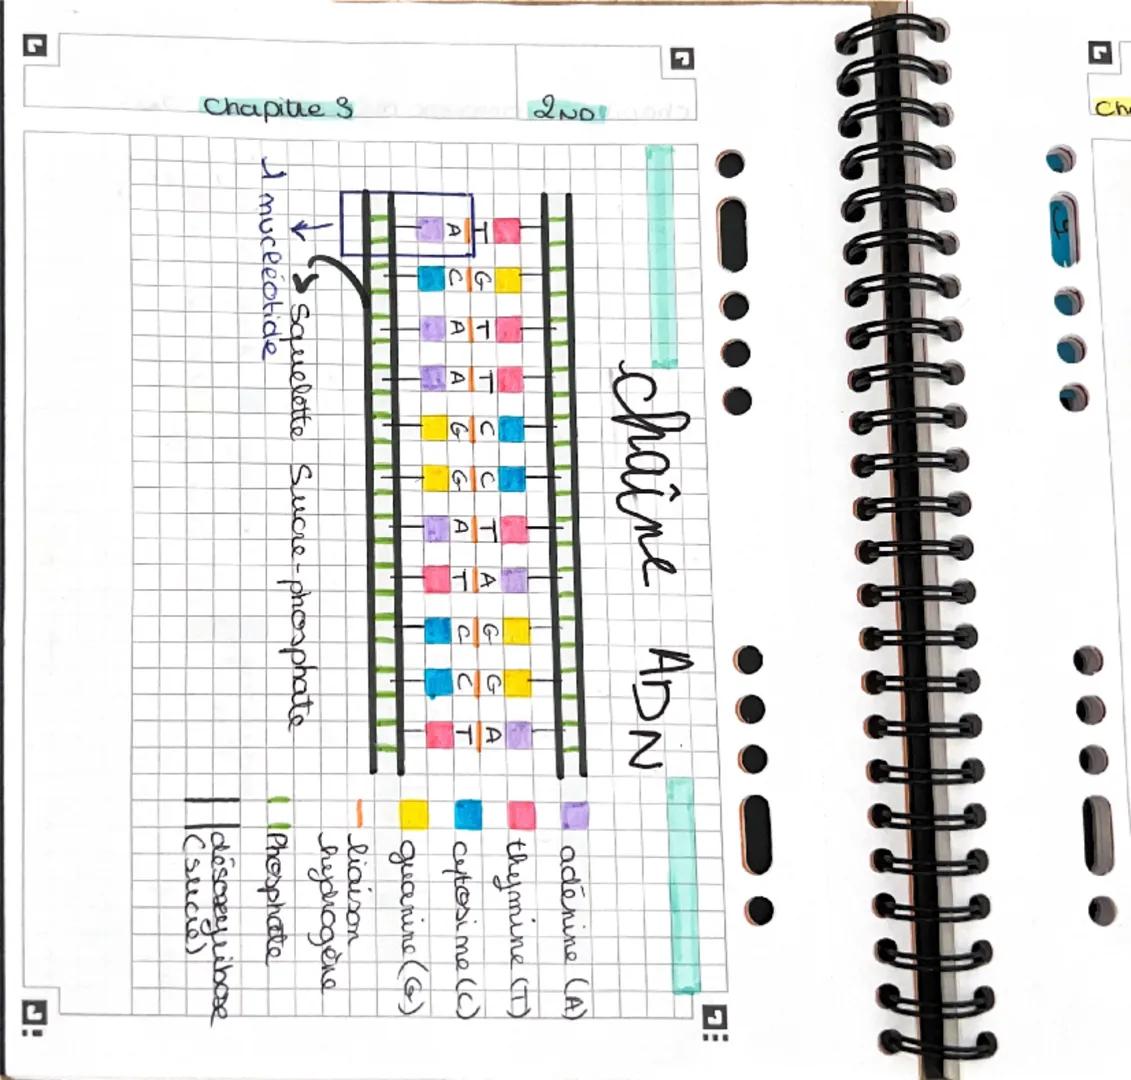 Chapitre 3
2ND
Chaîne ADN
A T
C G
A T
A T
G C
G C
A T
T A
C G
C G
T A
Squelette Sucre-phosphate
1 nucléotide
adénine (A)
thymine (T)
cytosine (C)
guanine (G)
liaison
hydrogène
Phosphate
désoxyribose
(sucre)